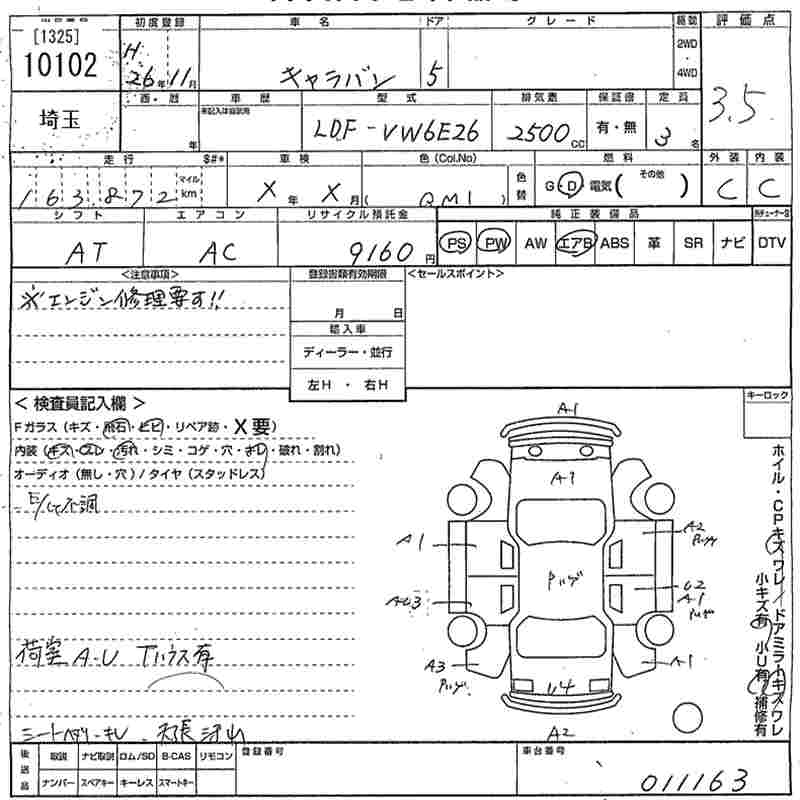 [1325]
10102
埼玉
初度登録
H
26年11月
車名
キャラバン
ドア
5
グレード
2WD
・
4WD
評価点
3.5
西・暦
年
車歴
未記入は自家用
型式
LDF-VW6E26
排気量
2500cc
保証書
有・無
定員
3名
走行
163872
マイル
km
車検
X年X月
色(Col.No)
(QM1)
色替
燃料
G・D・電気(その他)
外装
C
内装
C
シフト
AT
エアコン
AC
リサイクル預託金
9160円
純正装備品
PS PW AW エアB ABS 革 SR ナビ DTV
<注意事項>
※エンジン修理要す!!
登録書類有効期限
月 日
輸入車
ディーラー・並行
左H ・ 右H
<セールスポイント>
<検査員記入欄>
Fガラス(キズ・飛石・ヒビ・リペア跡・X要)
内装(キズ・スレ・汚れ・シミ・コゲ・穴・ヨレ・破れ・割れ)
オーディオ(無し・穴)/タイヤ(スタッドレス)
不調
荷室A-U Tハウス有
キーロック
ホイル・CPキズワレ/ドアミラーキズワレ
小キズ有 小U有 補修有
A1
A1
A1
A2
A3
A1
A2
A1
A2
後送品
取説 ナビ取説 ロム/SD B-CAS リモコン
ナンバー スペアキー キーレス スマートキー
登録番号
車台番号
011163